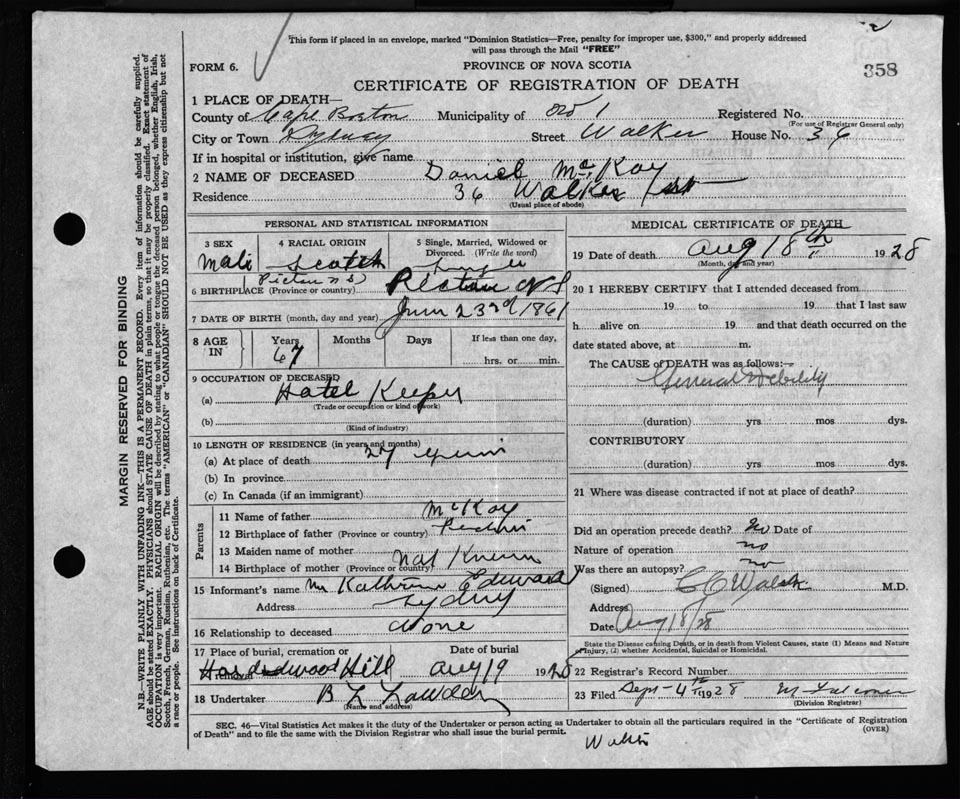 This form if placed in an envelope, marked "Dominion Statistics—Free, penalty for improper use, $300," and properly addressed
will pass through the Mail "FREE"
FORM 6.
PROVINCE OF NOVA SCOTIA
358
CERTIFICATE OF REGISTRATION OF DEATH
1 PLACE OF DEATH—
County of Cape Breton Municipality of Registered No.
(For use of Registrar General only)
City or Town Sydney Street Walker House No. 36
If in hospital or institution, give name
2 NAME OF DECEASED Daniel McKay
Residence 36 Walker
(Usual place of abode)
PERSONAL AND STATISTICAL INFORMATION
3 SEX 4 RACIAL ORIGIN 5 Single, Married, Widowed or Divorced. (Write the word)
Male Scotch Single
Pictou N S
6 BIRTHPLACE (Province or country) Pictou N S
7 DATE OF BIRTH (month, day and year) June 23rd 1861
8 AGE IN Years Months Days If less than one day,
67 hrs. or min.
9 OCCUPATION OF DECEASED
(a) Hotel Keeper
(Trade or occupation or kind of work)
(b)
(Kind of industry)
10 LENGTH OF RESIDENCE (in years and months)
(a) At place of death 27 years
(b) In province
(c) In Canada (if an immigrant)
Parents
11 Name of father McKay
12 Birthplace of father (Province or country)
13 Maiden name of mother
14 Birthplace of mother (Province or country) Not Known
15 Informant's name Kathrine Edward
Address Sydney
16 Relationship to deceased None
17 Place of burial, cremation or removal Date of burial
Hardwood Hill Aug 19 1928
18 Undertaker
(Name and address)
MEDICAL CERTIFICATE OF DEATH
19 Date of death Aug 18th 1928
(Month, day and year)
20 I HEREBY CERTIFY that I attended deceased from
19 to 19 that I last saw
h alive on 19 and that death occurred on
date stated above, at m.
The CAUSE of DEATH was as follows:—
General Debility
(duration) yrs mos dys.
CONTRIBUTORY
(duration) yrs mos dys.
21 Where was disease contracted if not at place of death?
Did an operation precede death? No Date of
Nature of operation no
Was there an autopsy? no
(Signed) M.D.
Address
Date Aug 18/28
State the Disease causing Death, or in death from Violent Causes, state (1) Means and Nature
of Injury, (2) whether Accidental, Suicidal or Homicidal.
22 Registrar's Record Number
23 Filed Sept 4th 1928
(Division Registrar)
SEC. 46—Vital Statistics Act makes it the duty of the Undertaker or person acting as Undertaker to obtain all the particulars required in the "Certificate of Registration
of Death" and to file the same with the Division Registrar who shall issue the burial permit.
(OVER)
MARGIN RESERVED FOR BINDING
N.B.—WRITE PLAINLY WITH UNFADING INK—THIS IS A PERMANENT RECORD. Every item of information should be carefully supplied.
AGE should be stated EXACTLY. PHYSICIANS should STATE CAUSE OF DEATH in plain terms, so that it may be properly classified. Exact statement of
OCCUPATION is very important. RACIAL ORIGIN will be described by stating to what people or tongue the deceased person belonged, whether English, Irish,
Scotch, French, German, Russian, Ruthenian, etc. The terms "AMERICAN" or "CANADIAN" SHOULD NOT BE USED as they express citizenship but not
a race or people. See instructions on back of Certificate.